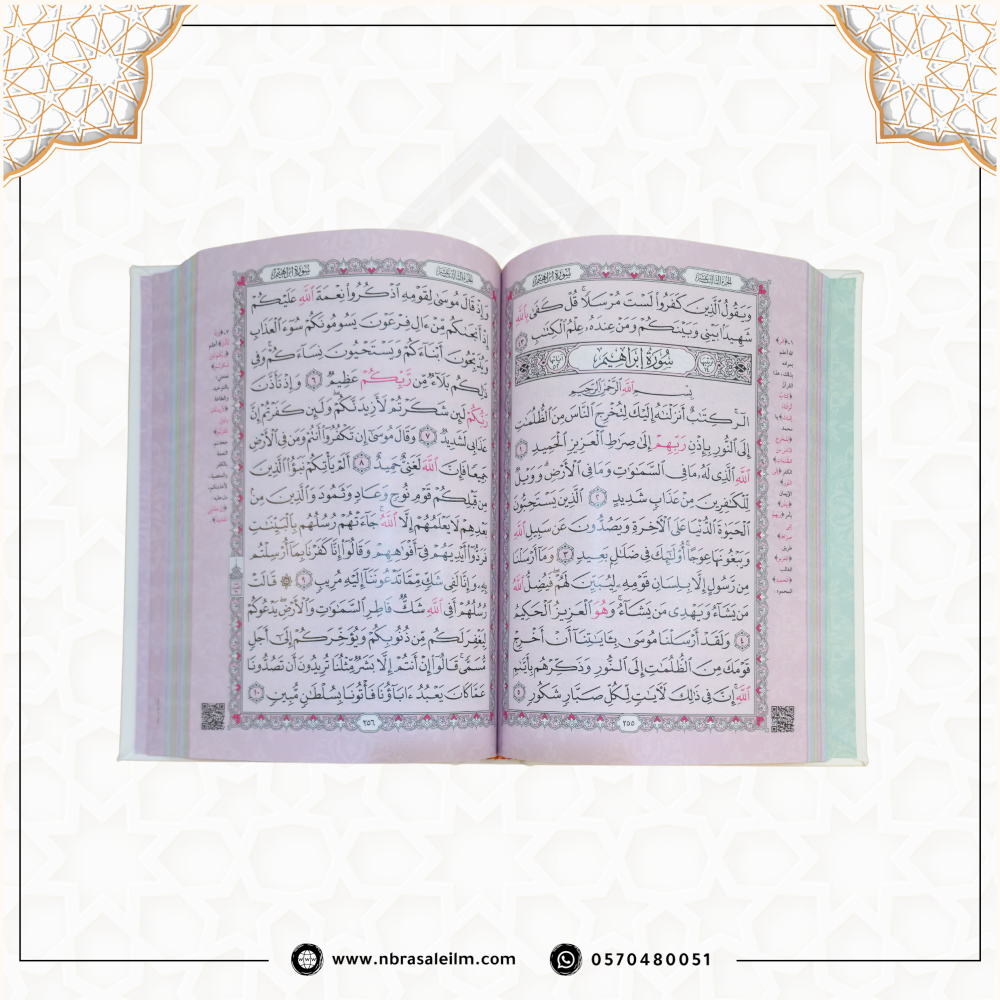 سورة إبراهيم
ويقول الذين كفروا لست مرسلا قل كفى بالله
شهيدا بيني وبينكم ومن عنده علم الكتب ٤٣
سورة إبراهيم
بسم الله الرحمن الرحيم
الر كتب أنزلنه إليك لتخرج الناس من الظلمت
إلى النور بإذن ربهم إلى صرط العزيز الحميد ١
الله الذي له ما في السموت وما في الأرض وويل
للكفرين من عذاب شديد ٢ الذين يستحبون
الحيوة الدنيا على الآخرة ويصدون عن سبيل الله
ويبغونها عوجا أولئك في ضلل بعيد ٣ وما أرسلنا
من رسول إلا بلسان قومه ليبين لهم فيضل الله
من يشاء ويهدي من يشاء وهو العزيز الحكيم
٤ ولقد أرسلنا موسى بـايتنا أن أخرج
قومك من الظلمت إلى النور وذكرهم بأييم
الله إن في ذلك لأيت لكل صبار شكور ٥
٢٥٥
سورة إبراهيم
وإذ قال موسى لقومه اذكروا نعمة الله عليكم
إذ أنجىكم من ءال فرعون يسومونكم سوء العذاب
ويذبحون أبناءكم ويستحيون نساءكم وفي
ذلكم بلاء من ربكم عظيم ٦ وإذ تأذن
ربكم لئن شكرتم لأزيدنكم ولئن كفرتم إن
عذابي لشديد ٧ وقال موسى إن تكفروا أنتم ومن في الأرض
جميعا فإن الله لغني حميد ٨ ألم يأتكم نبؤا الذين
من قبلكم قوم نوح وعاد وثمود والذين من
بعدهم لا يعلمهم إلا الله جاءتهم رسلهم بالبينت
فردوا أيديهم في أفوههم وقالوا إنا كفرنا بما أرسلتم
به وإنا لفي شك مما تدعوننا إليه مريب ٩ قالت
رسلهم أفي الله شك فاطر السموت والأرض يدعوكم
ليغفر لكم من ذنوبكم ويؤخركم إلى أجل
مسمى قالوا إن أنتم إلا بشر مثلنا تريدون أن تصدونا
عما كان يعبد ءاباؤنا فأتونا بسلطن مبين ١٠
٢٥٦
www.nbrasaleilm.com
0570480051